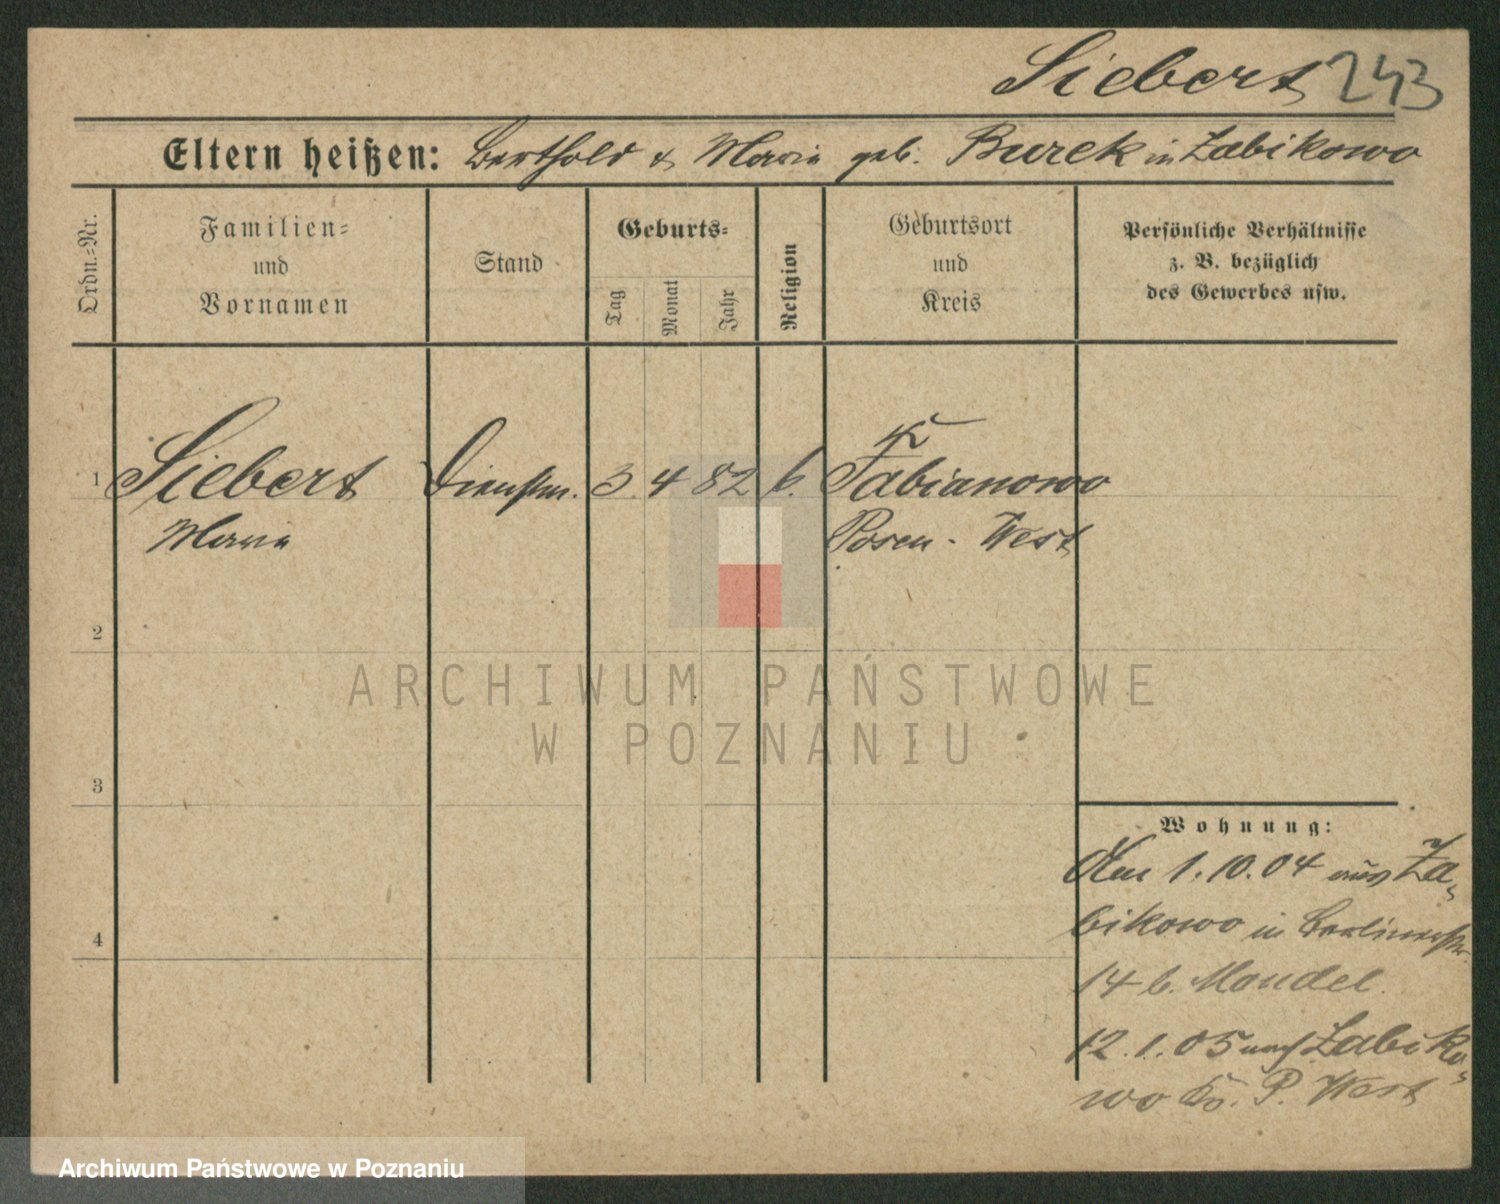 Siebert 243
Eltern heißen: Berthold & Marie geb. Burek in Zabikowo
Ordn.-Nr.
Familien-
und
Vornamen
Stand
Geburts-
Tag
Monat
Jahr
Religion
Geburtsort
und
Kreis
Persönliche Verhältnisse
z. B. bezüglich
des Gewerbes usw.
1 Siebert Dienstm. 3 4 82 k. Fabianowo
Marie Posen - West
2
3
4
Wohnung:
Den 1.10.04 aus Za-
bikowo in Berlinerstr.
14 b. Mandel.
12.1.05 nach Zabiko-
wo Kr. P. West
ARCHIWUM PAŃSTWOWE
W POZNANIU
Archiwum Państwowe w Poznaniu